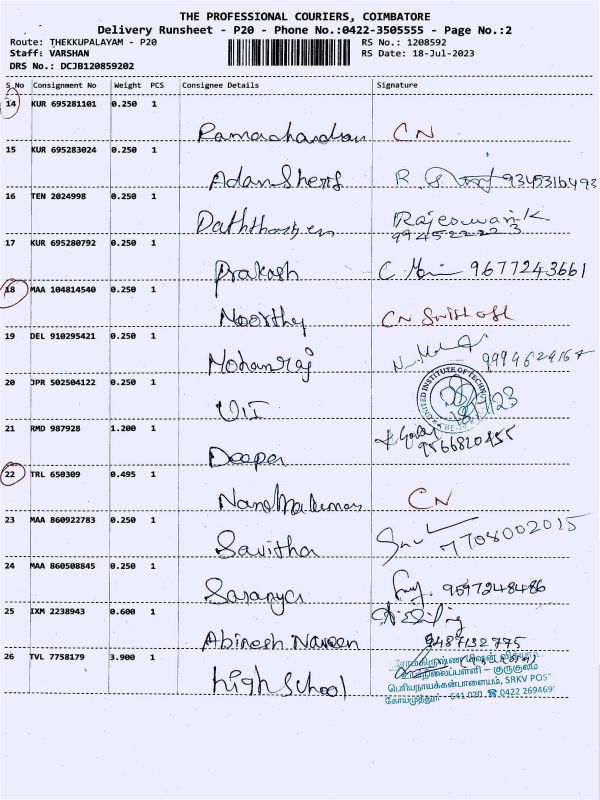 THE PROFESSIONAL COURIERS, COIMBATORE
Delivery Runsheet - P20 - Phone No.:0422-3505555 - Page No.:2
Route: THEKKUPALAYAM - P20
RS No.: 1208592
Staff: VARSHAN
RS Date: 18-Jul-2023
DRS No.: DCJB120859202
S No Consignment No Weight PCS Consignee Details Signature
14 KUR 695281101 0.250 1
Ramachandran CN
15 KUR 695283024 0.250 1
Adan Sherif R
16 TEN 2024998 0.250 1
Rajeswari.K
17 KUR 695280792 0.250 1
Prakash C 9677243661
18 MAA 104814540 0.250 1
Moorthy CN
19 DEL 910295421 0.250 1
Mohanraj
20 JPR 502504122 0.250 1
UIT
UNITED INSTITUTE OF TECHN
18/7/23
21 RMD 987928 1.200 1
Deepa
22 TRL 650309 0.495 1
Nandhakumar CN
23 MAA 860922783 0.250 1
Savitha 7708002015
24 MAA 860508845 0.250 1
Saranya 9597248486
25 IXM 2238943 0.600 1
Abinesh Naveen
9487132775
26 TVL 7758179 3.900 1
high School
பெரியநாயக்கன்பாளையம், SRKV POS
கோயமுத்தூர் - 641 020 ☎0422 269469